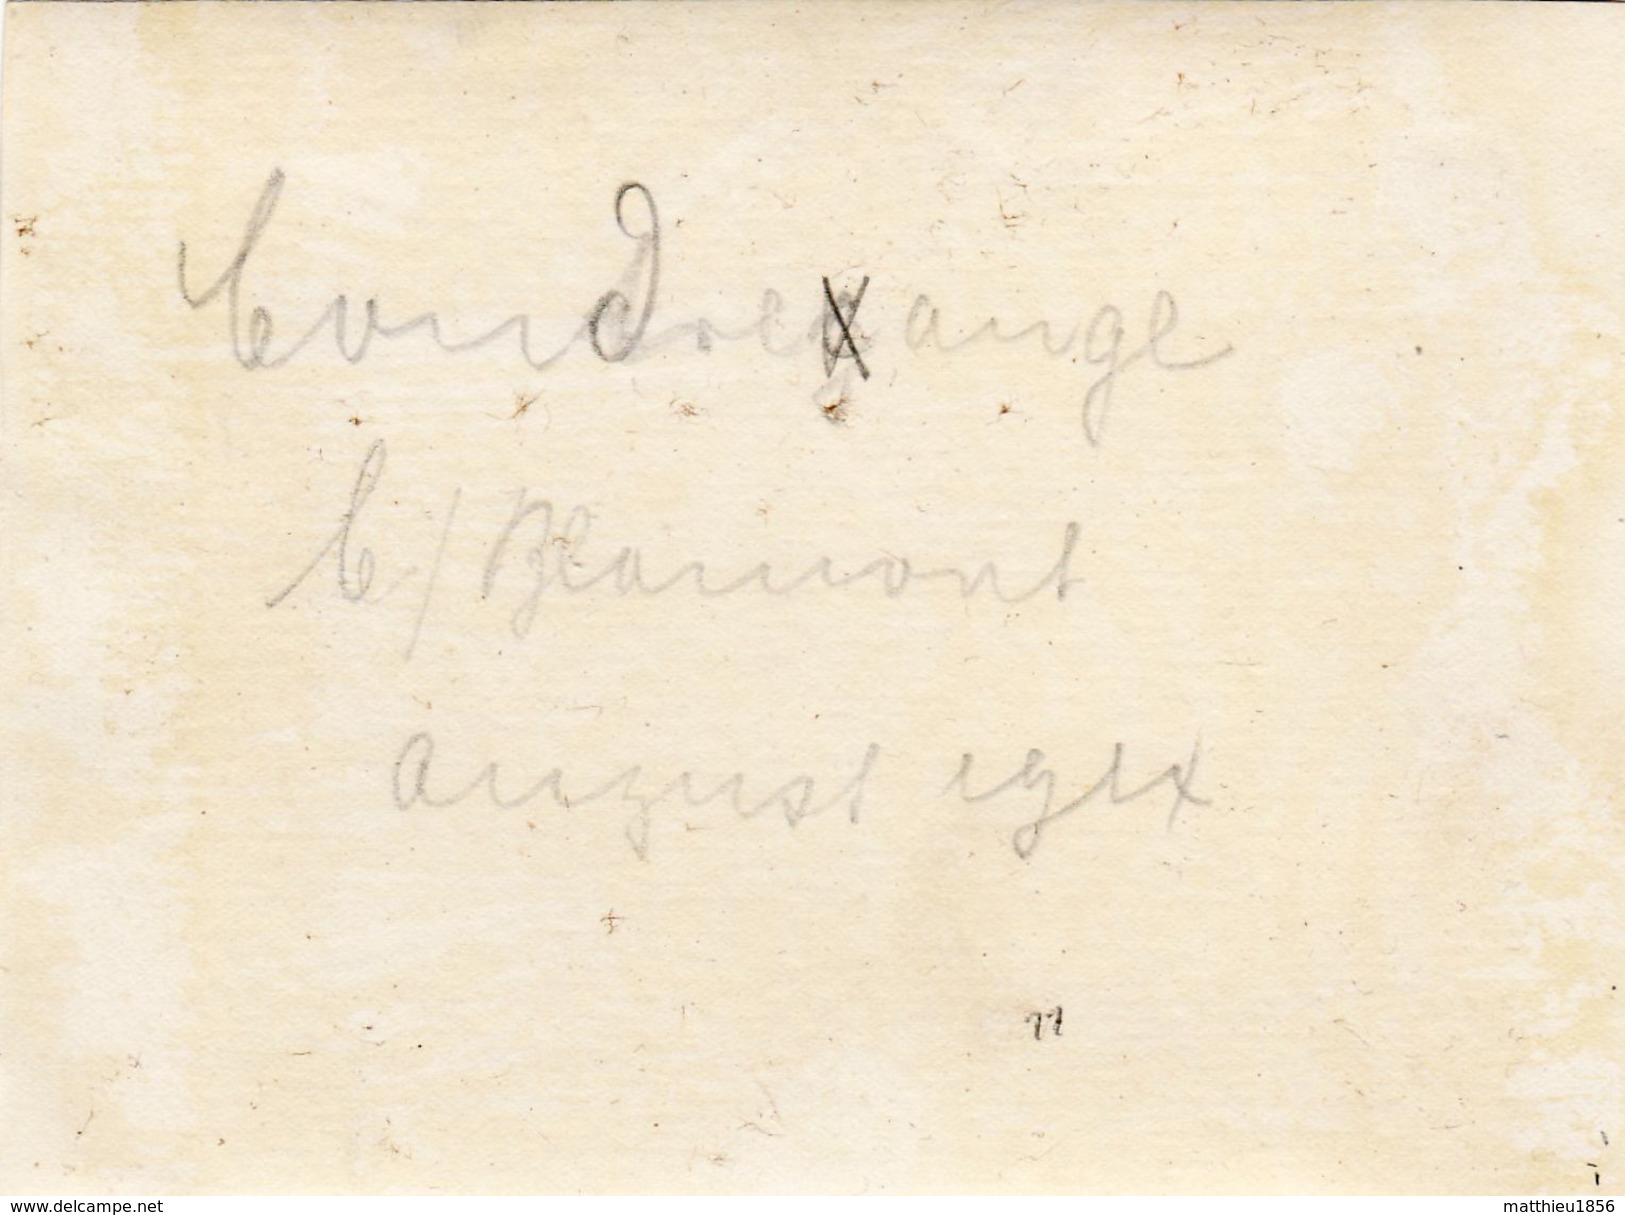 Condrexange
b/ Blamont
august 1914
11
delcampe.net
matthieu1856